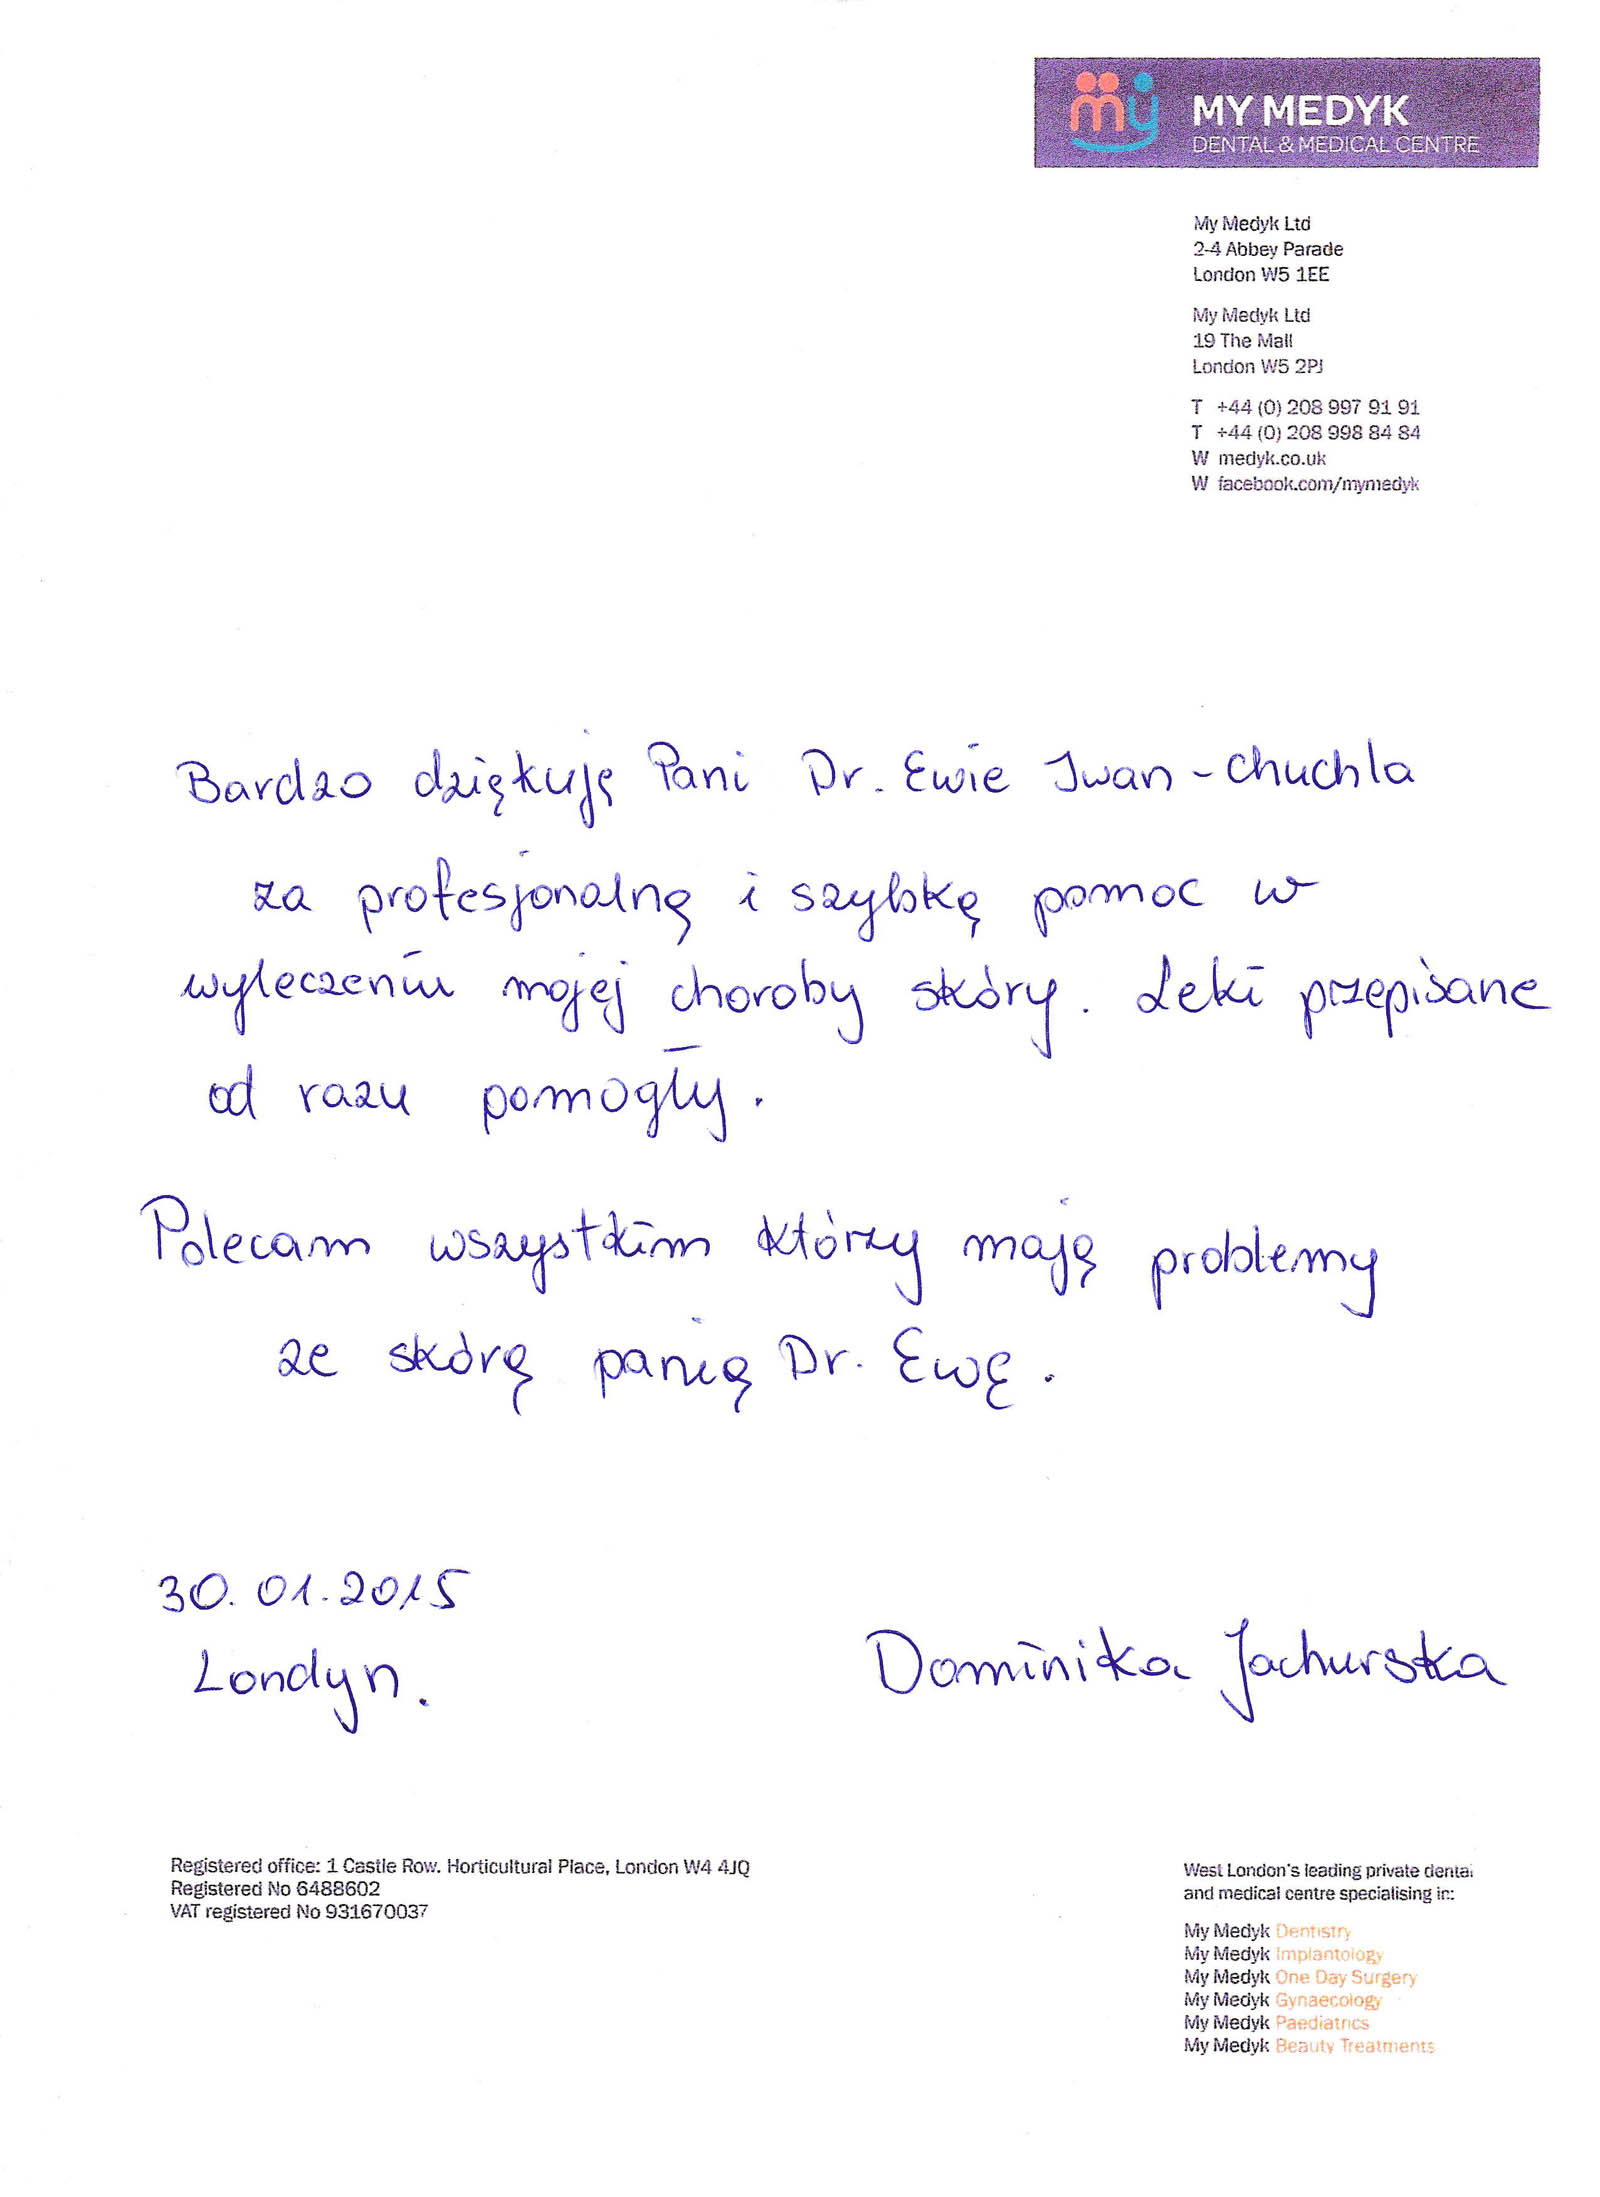 my MY MEDYK
DENTAL & MEDICAL CENTRE
My Medyk Ltd
2-4 Abbey Parade
London W5 1EE
My Medyk Ltd
19 The Mall
London W5 2PJ
T +44 (0) 208 997 91 91
T +44 (0) 208 998 84 84
W medyk.co.uk
W facebook.com/mymedyk
Bardzo dziękuję Pani Dr. Ewie Iwan-Chuchla
za profesjonalną i szybką pomoc w
wyleczeniu mojej choroby skóry. Leki przepisane
od razu pomogły.
Polecam wszystkim którzy mają problemy
ze skórą panią Dr. Ewę.
30.01.2015
Londyn.
Dominika Jachurska
Registered office: 1 Castle Row. Horticultural Place, London W4 4JQ
Registered No 6488602
VAT registered No 931670037
West London's leading private dental
and medical centre specialising in:
My Medyk Dentistry
My Medyk Implantology
My Medyk One Day Surgery
My Medyk Gynaecology
My Medyk Paediatrics
My Medyk Beauty Treatments